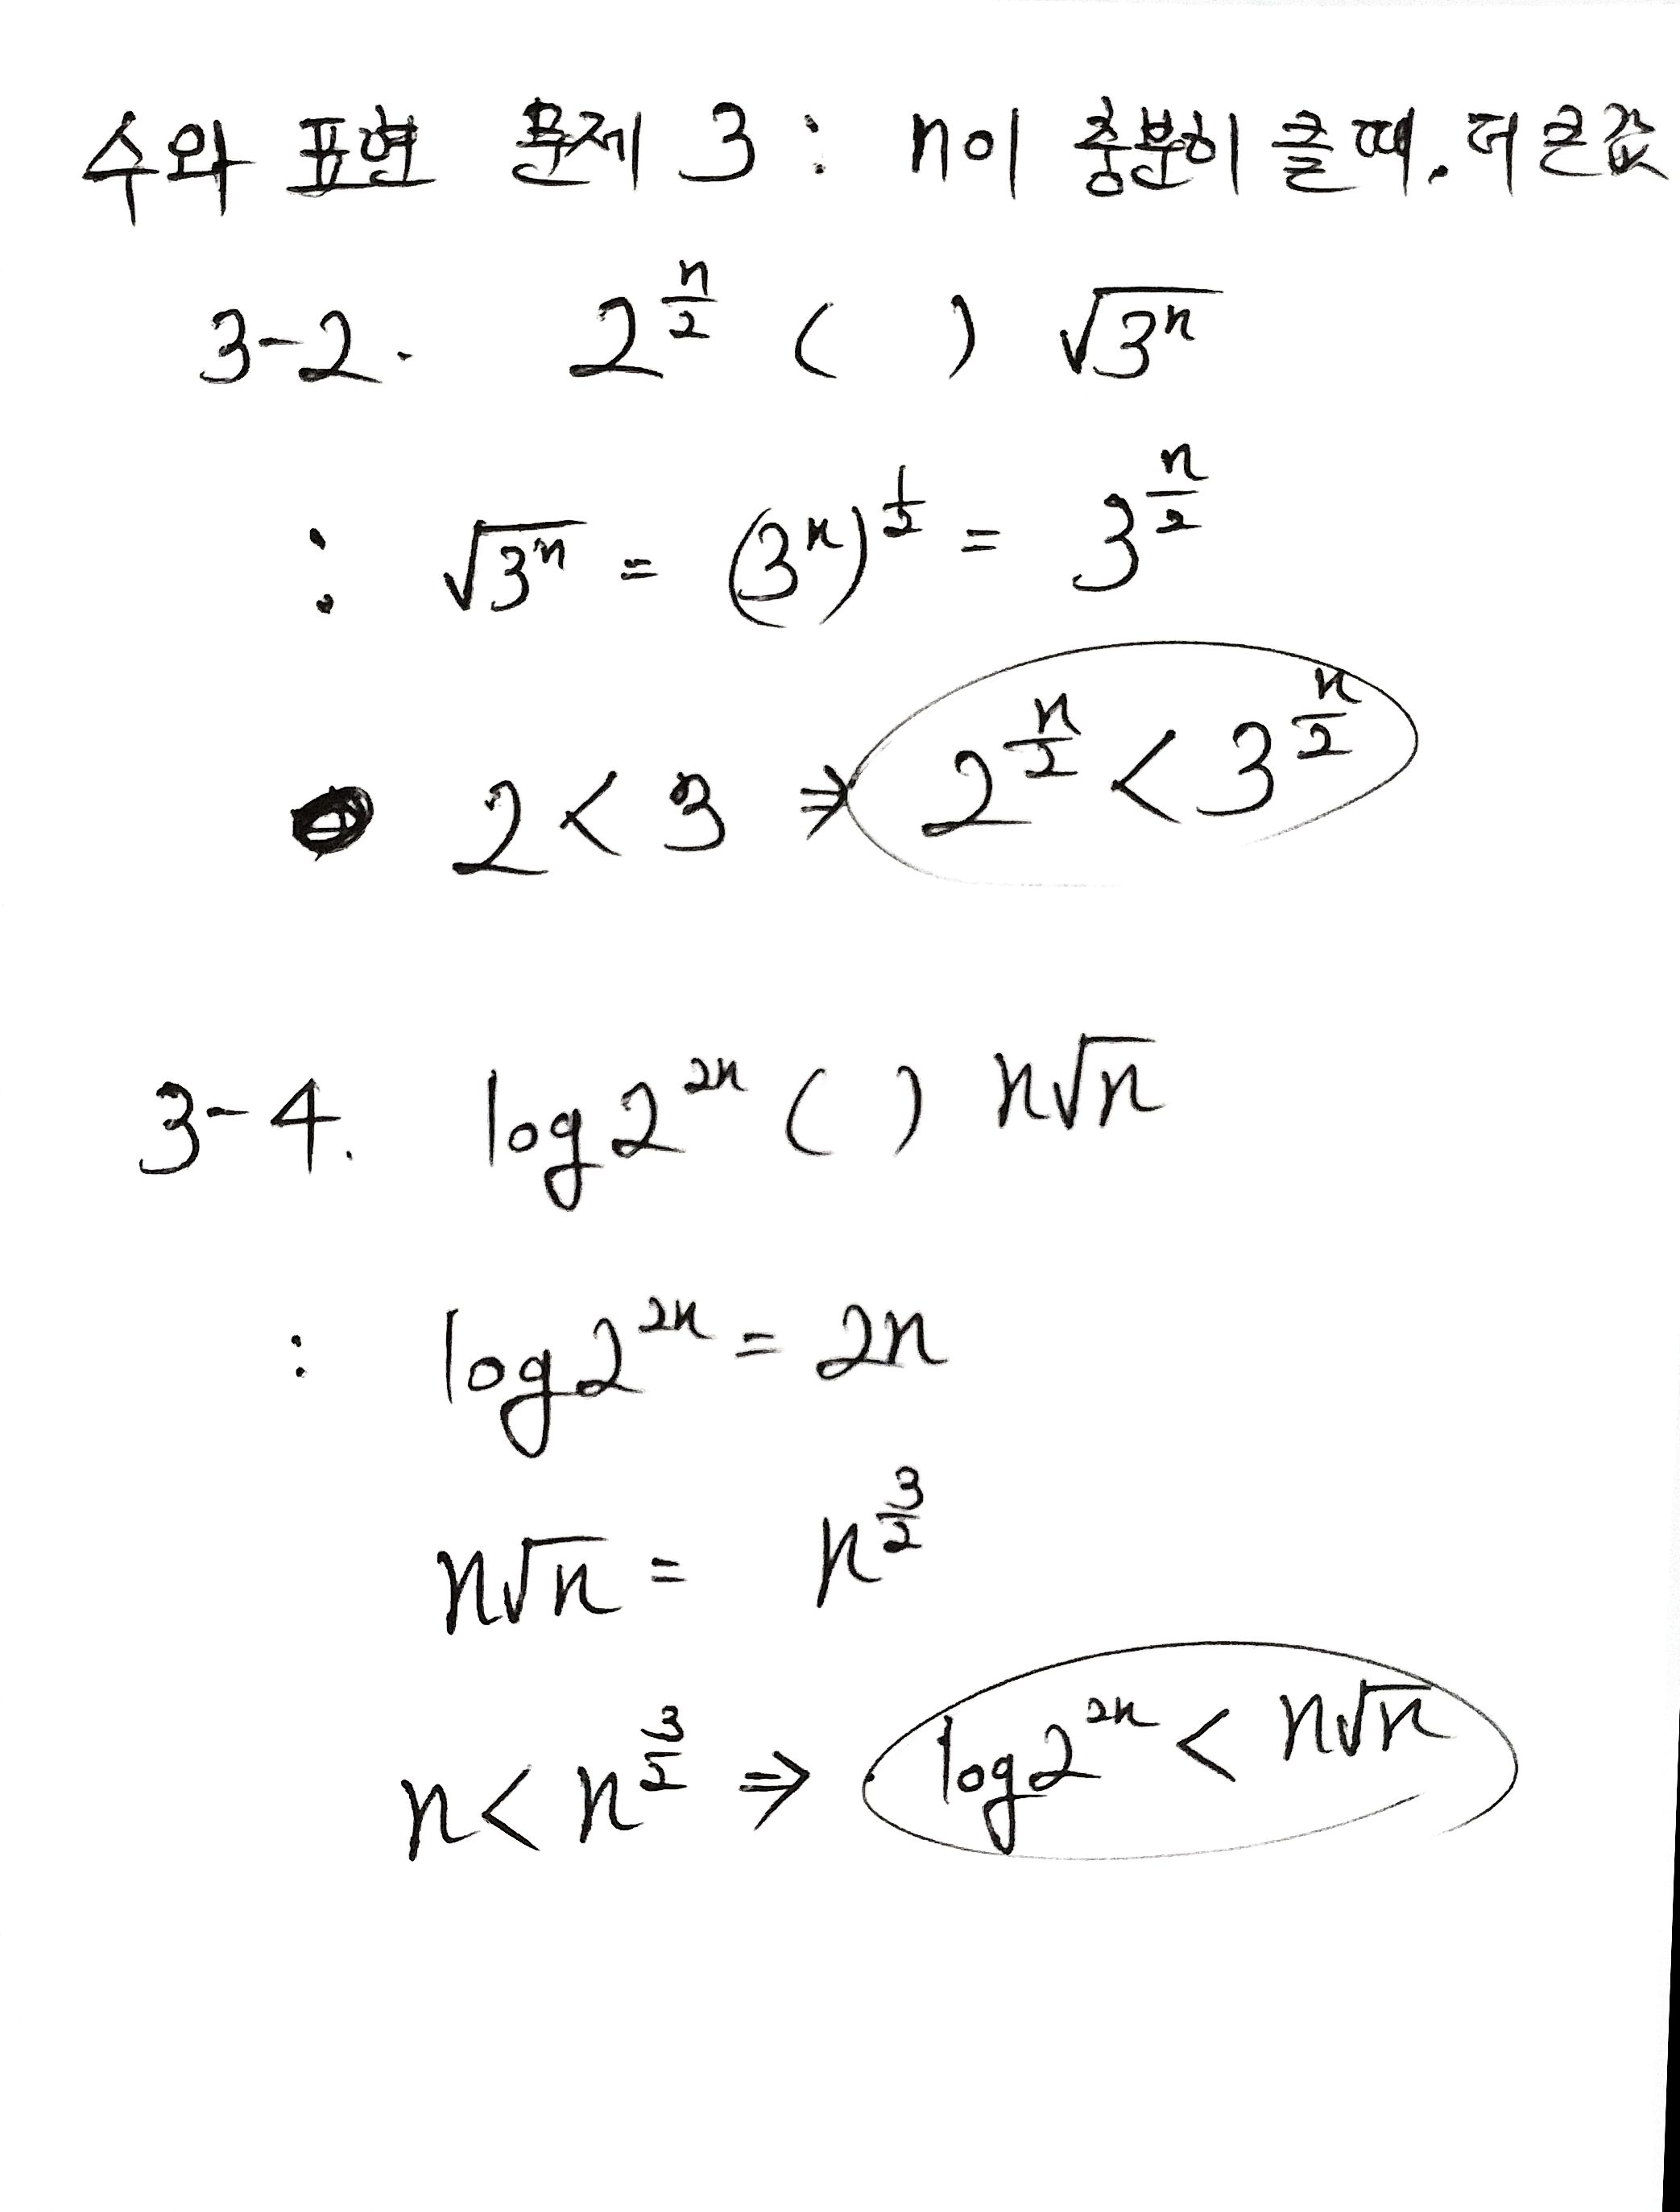 수와 표현 문제 3 : n이 충분히 클 때, 더 큰 값
3-2. 2^{n/2} ( ) √(3^n)
: √(3^n) = (3^n)^{1/2} = 3^{n/2}
2 < 3 ⇒ 2^{n/2} < 3^{n/2}
3-4. log 2^{2n} ( ) n√n
: log 2^{2n} = 2n
n√n = n^{3/2}
n < n^{3/2} ⇒ log 2^{2n} < n√n